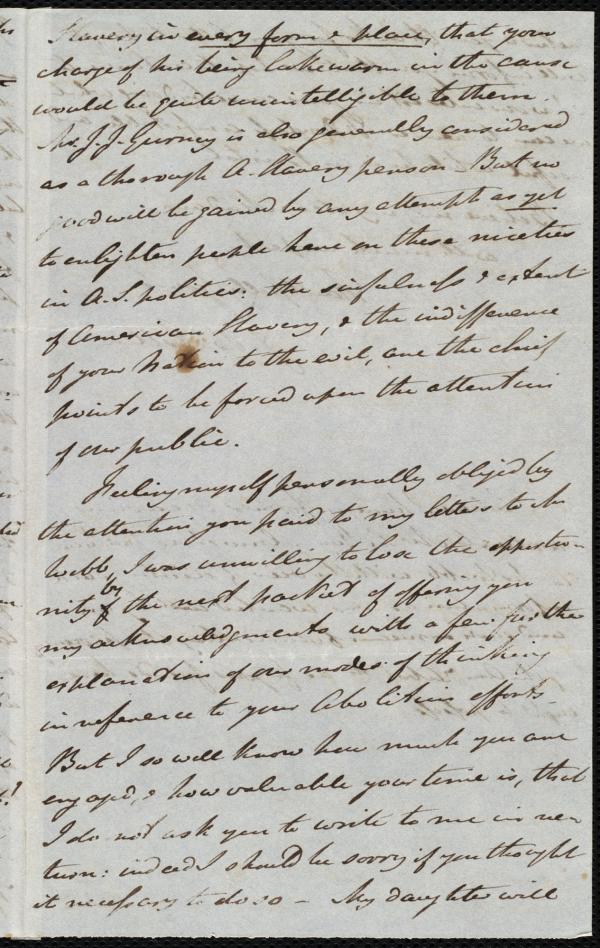 Slavery in every form & place, that your
charge of his being lukewarm in the cause
would be quite unintelligible to them.
Mr. J. J. Gurney is also generally considered
as a thorough A. Slavery person - But no
good will be gained by any attempt as yet
to enlighten people here on these niceties
in A. S. politics: the sinfulness & extent
of American Slavery, & the indifference
of your nation to the evil, are the chief
points to be forced upon the attention
of our public.
Feeling myself personally obliged by
the attention you paid to my letters to Mr
Webb, I was unwilling to lose the opportu-
nity by the next packet of offering you
my acknowledgments with a few further
explanations of our modes of thinking
in reference to your Abolition efforts -
But I so well know how much you are
engaged, & how valuable your time is, that
I do not ask you to write to me in re-
turn: indeed I should be sorry if you thought
it necessary to do so - My daughter will